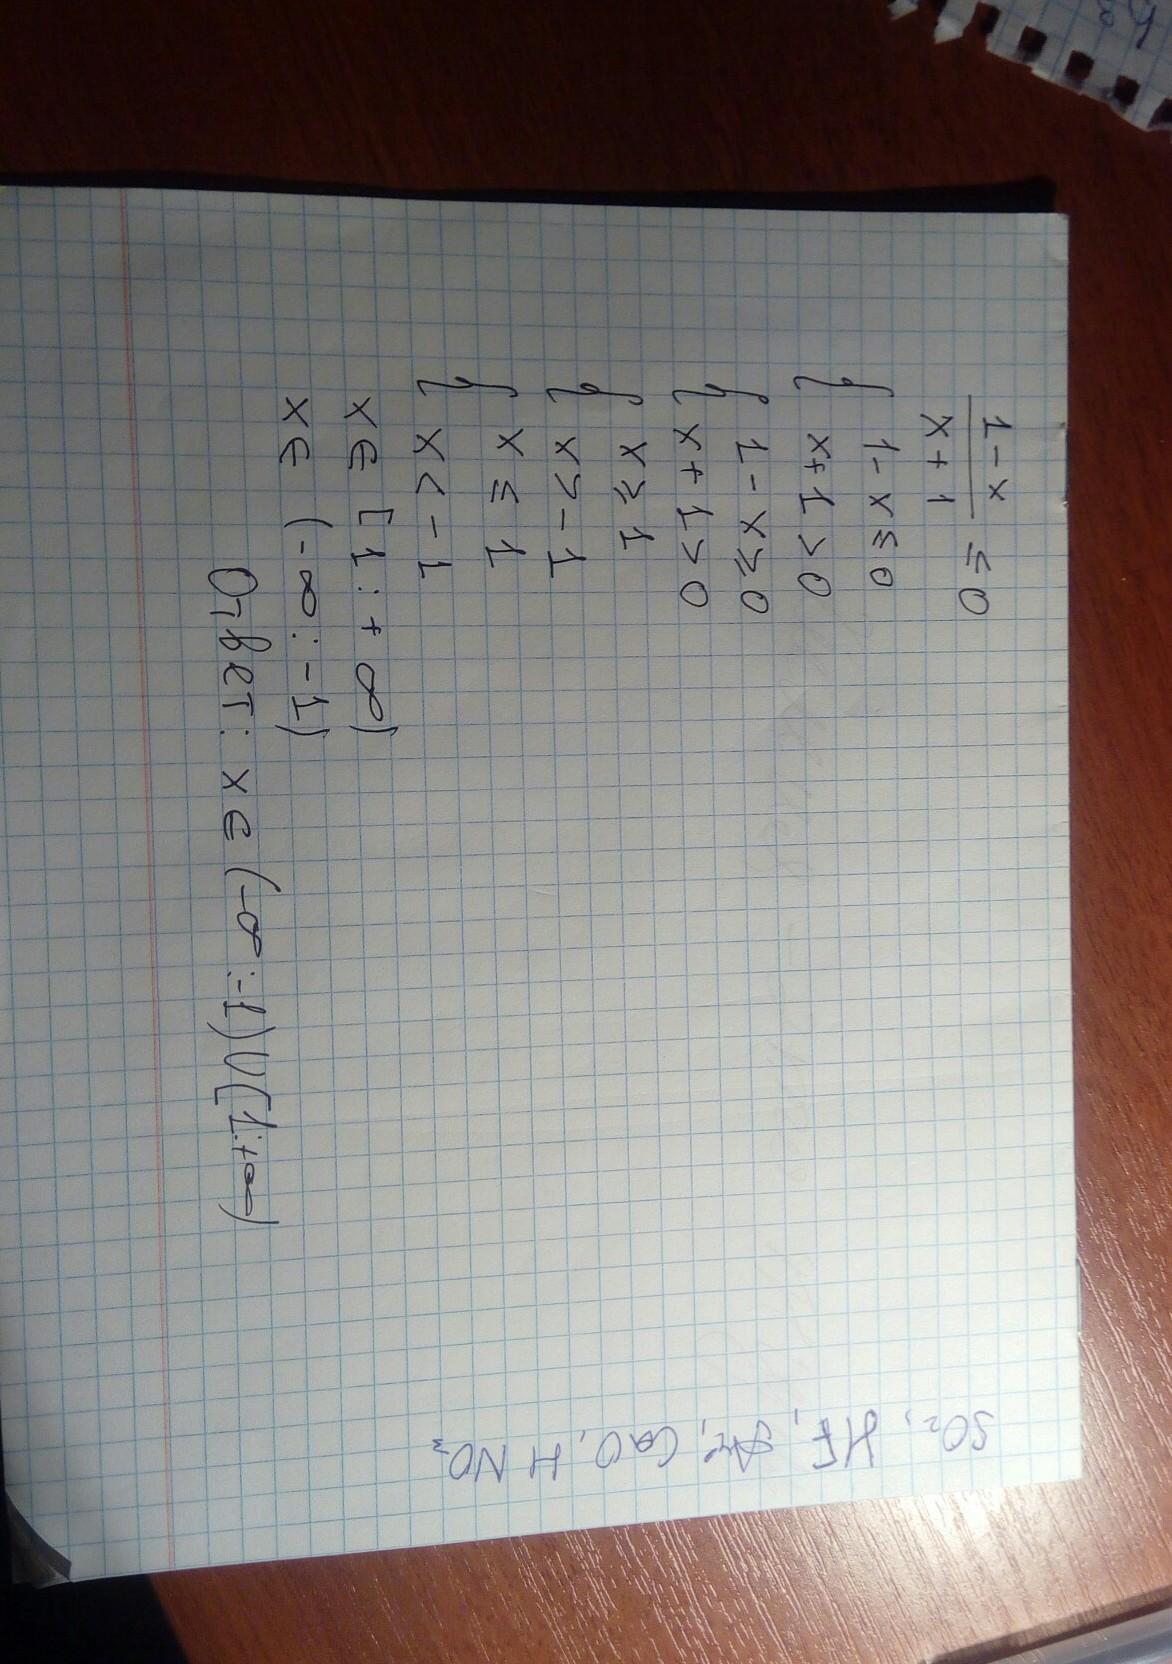 1-x
x+1 ≤ 0
{ 1-x ≤ 0
x+1 > 0
{ 1-x ≥ 0
x+1 < 0
{ x ≥ 1
x > -1
{ x ≤ 1
x < -1
x ∈ [1 : +∞)
x ∈ (-∞ : -1)
Ответ: x ∈ (-∞ : -1) ∪ [1 : +∞)
SO₂, HF, CaO, HNO₃